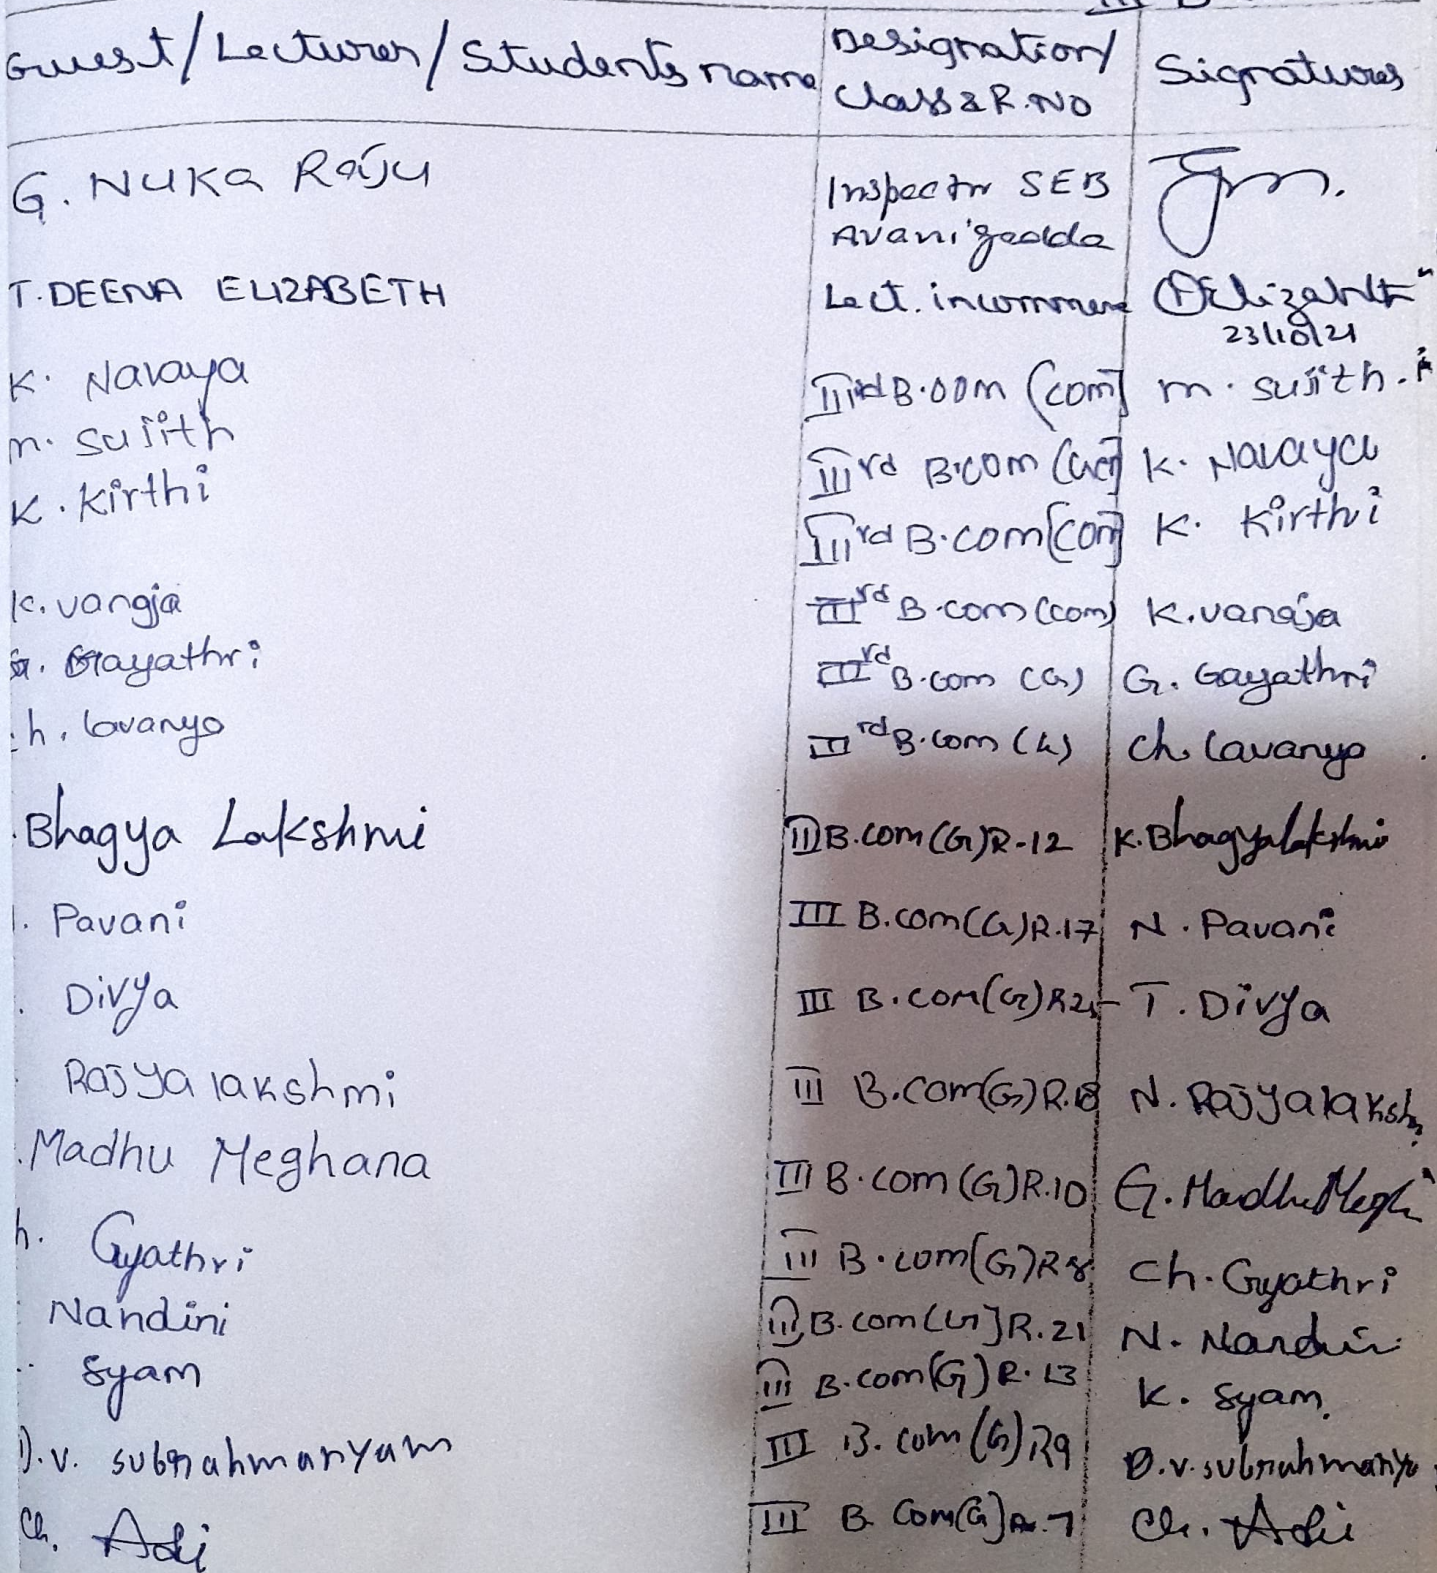 Guest/Lecturer/Students name Designation/ Class & R.NO Signatures
G. NUKA RaJu Inspector SEB Avanigadda
T. DEENA ELIZABETH Lect. in commerce Elizabeth
23/10/21
K. Navaya IIIrd B.com (com) m. sujith.
m. sujith IIIrd B.com K. Navaya
K. Kirthi IIIrd B.com (com) K. Kirthi
K. vanaja IIIrd B.com (com) K. vanaja
G. Gayathri IIIrd B.com (G) G. Gayathri
ch. lavanya IIIrd B.com (G) ch. lavanya
Bhagya Lakshmi III B.com (G) R-12 K. Bhagyalakshmi
Pavani III B.com (G) R.17 N. Pavani
Divya III B.com (G) T. Divya
Rajyalakshmi III B.com (G) R.18 N. Rajyalaksh
Madhu Meghana III B.com (G) R.10 G. Madhu Megh
h. Gyathri III B.com (G) R8 ch. Gyathri
Nandini III B.com (G) R.21 N. Nandini
Syam III B.com (G) R.13 K. Syam
D.v. subrahmanyam III B.com (G) R9 D.v. subrahmanya
Ch. Adi III B.Com (G) R.7 Ch. Adi